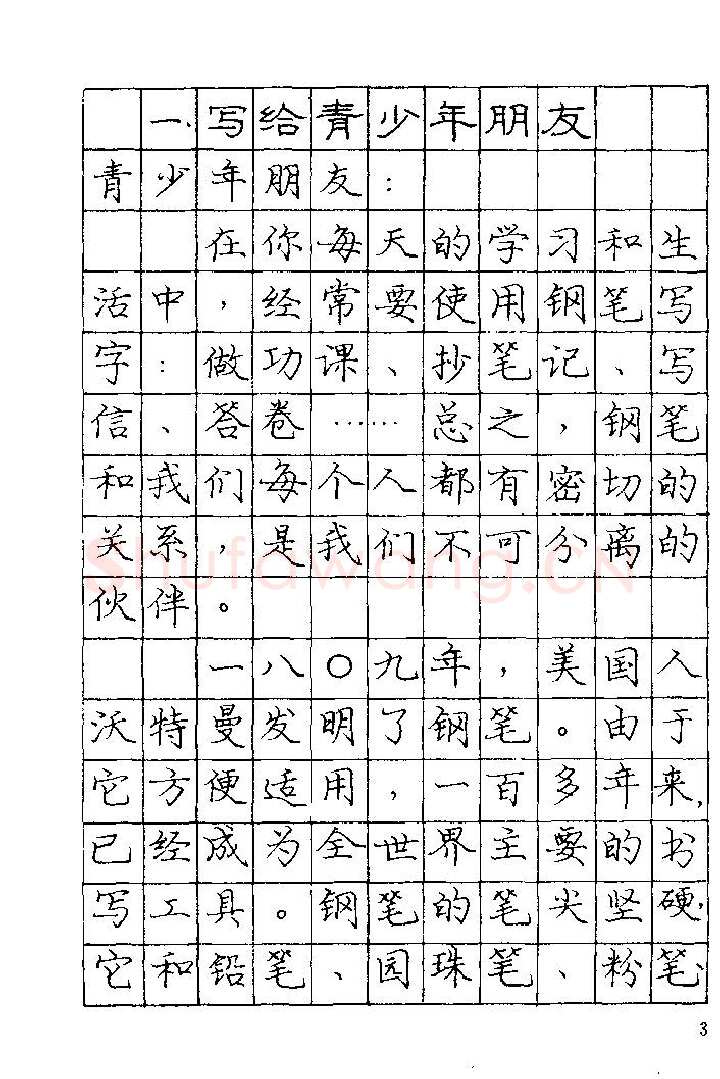 一、写给青少年朋友
青少年朋友：
在你每天的学习和生
活中，经常要使用钢笔写
字：做功课、抄笔记、写
信、答卷……总之，钢笔
和我们每个人都有密切的
关系，是我们不可分离的
伙伴。
一八〇九年，美国人
沃特曼发明了钢笔。由于
它方便适用，一百多年来，
已经成为全世界主要的书
写工具。钢笔的笔尖坚硬，
它和铅笔、园珠笔、粉笔、
3
Shufawang.CN